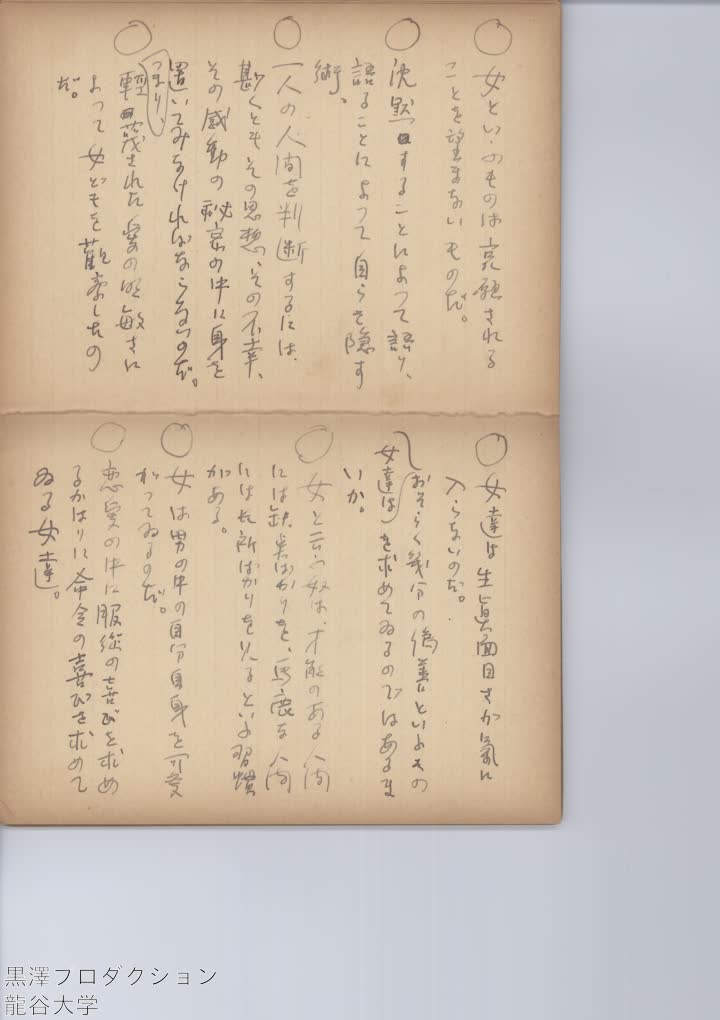 ○ 女といふものは哀願される
ことを望まないものだ。
○ 沈黙することによつて語り、
語ることによつて自らを隠す
術、
○ 一人の人間を判断するには、
尠くともその思想、その不幸、
その感動の秘密の中に身を
置いてみなければならないのだ。
○ つまり、
軽蔑された愛の明敏さに
よつて女どもを観察したの
だ。
○ 女達は生眞面目さが氣に
入らないのだ。
おそらく幾分の偽善といふもの
女達は を求めてゐるのではあるま
いか。
○ 女と云ふ奴は、才能のある人間
には缺点ばかりを、馬鹿な人間
には長所ばかりを見るといふ習慣
がある。
○ 女は男の中の自分自身を可愛
がつてゐるのだ。
○ 恋愛の中に服従の喜びを求め
るかはりに命令の喜びを求めて
ゐる女達。
黒澤プロダクション
龍谷大学